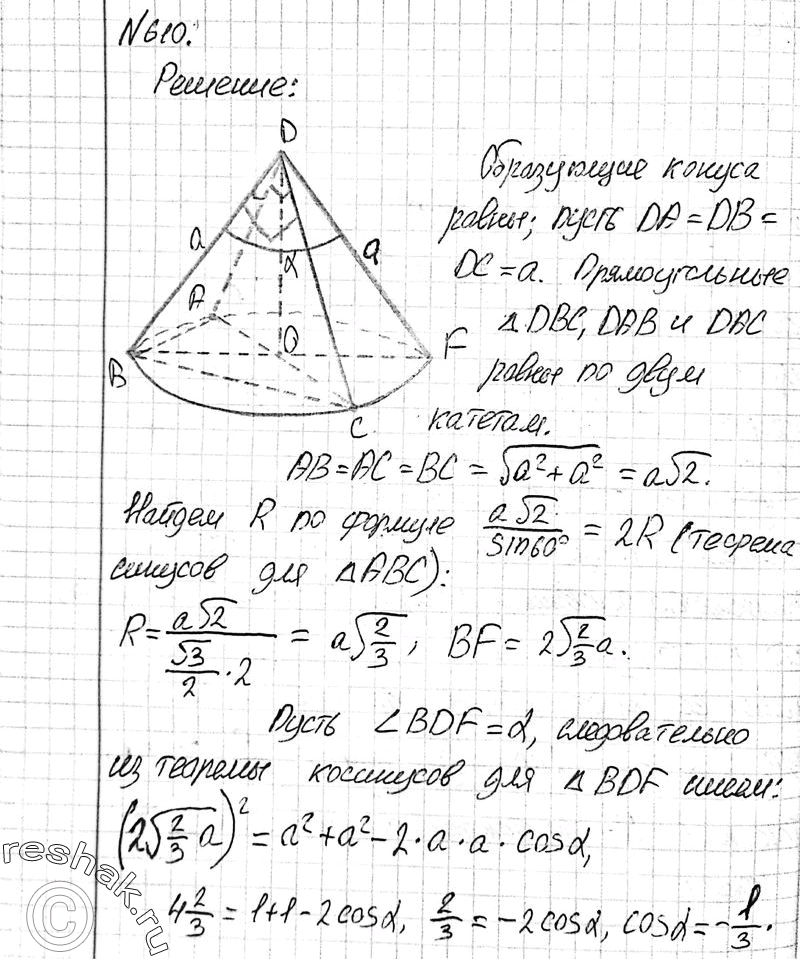 №610.
Решение:
D
a
a
α
A
B
O
F
C
Образующие конуса
равны; пусть DA=DB=
DC=a. Прямоугольные
△DBC, DAB и DAC
равны по двум
катетам.
AB=AC=BC=√(a²+a²)=a√2.
Найдем R по формуле a√2/sin60°=2R (теорема
синусов для △ABC):
R=a√2/(√3/2·2)=a√(2/3), BF=2√(2/3)a.
Пусть ∠BDF=α, следовательно
из теоремы косинусов для △BDF имеем:
(2√(2/3)a)²=a²+a²-2·a·a·cosα,
4 2/3=1+1-2cosα, 2/3=-2cosα, cosα=-1/3.
reshak.ru
©